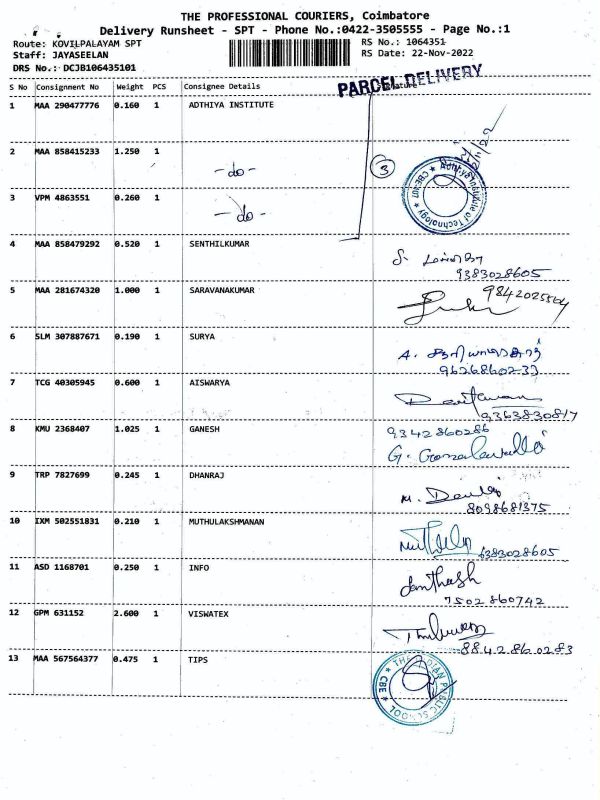 THE PROFESSIONAL COURIERS, Coimbatore
Delivery Runsheet - SPT - Phone No.:0422-3505555 - Page No.:1
Route: KOVILPALAYAM SPT
RS No.: 1064351
Staff: JAYASEELAN
RS Date: 22-Nov-2022
DRS No.: DCJB106435101
S No Consignment No Weight PCS Consignee Details
PARCEL DELIVERY
1 MAA 290477776 0.160 1 ADTHIYA INSTITUTE
2 MAA 858415233 1.250 1 -do-
3
3 VPM 4863551 0.260 1 -do-
Institute of Technology ★ CBE-107 ★
4 MAA 858479292 0.520 1 SENTHILKUMAR
9383028605
5 MAA 281674320 1.000 1 SARAVANAKUMAR
6 SLM 307887671 0.190 1 SURYA
7 TCG 40305945 0.600 1 AISWARYA
9363830817
8 KMU 2368407 1.025 1 GANESH
9342860286
9 TRP 7827699 0.245 1 DHANRAJ
8098681375
10 IXM 502551831 0.210 1 MUTHULAKSHMANAN
6383028605
11 ASD 1168701 0.250 1 INFO
7502860742
12 GPM 631152 2.600 1 VISWATEX
8842860283
13 MAA 567564377 0.475 1 TIPS
THE INDIAN PUBLIC SCHOOL ★ CBE ★